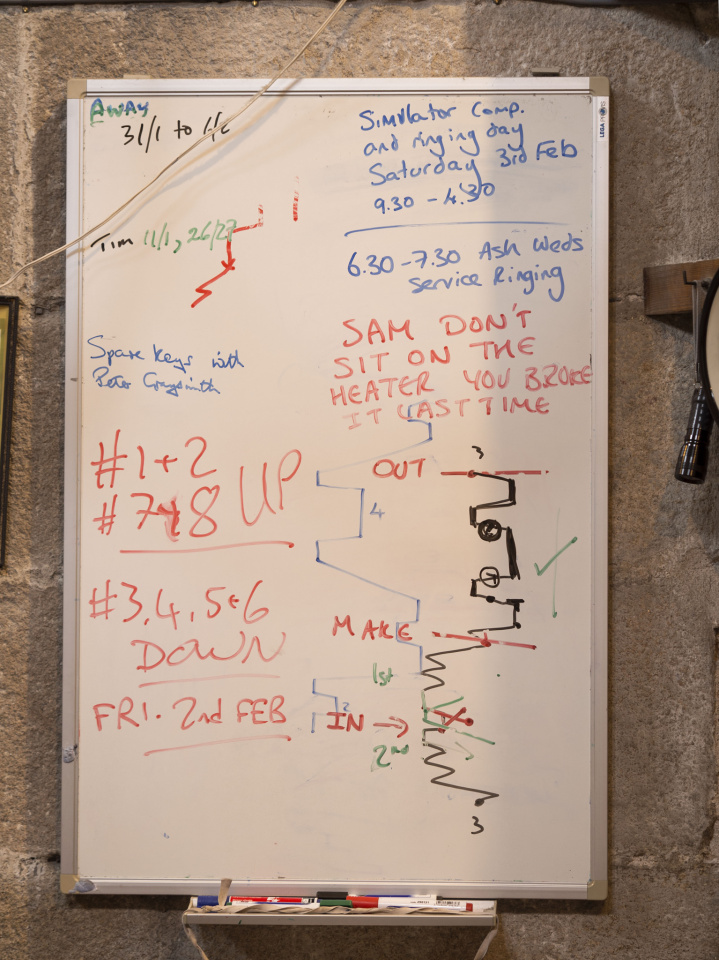 AWAY
31/1 to
Tim 11/1, 26/27
Spare keys with
Peter
#1+2
#7+8 UP
#3,4,5+6
DOWN
FRI. 2nd FEB
Simulator Comp.
and ringing day
Saturday 3rd Feb
9.30 - 4.30
6.30-7.30 Ash Weds
service Ringing
SAM DON'T
SIT ON THE
HEATER YOU BROKE
IT LAST TIME
3
OUT
4
MAKE
1st
2
IN →
2nd
3
LEGA